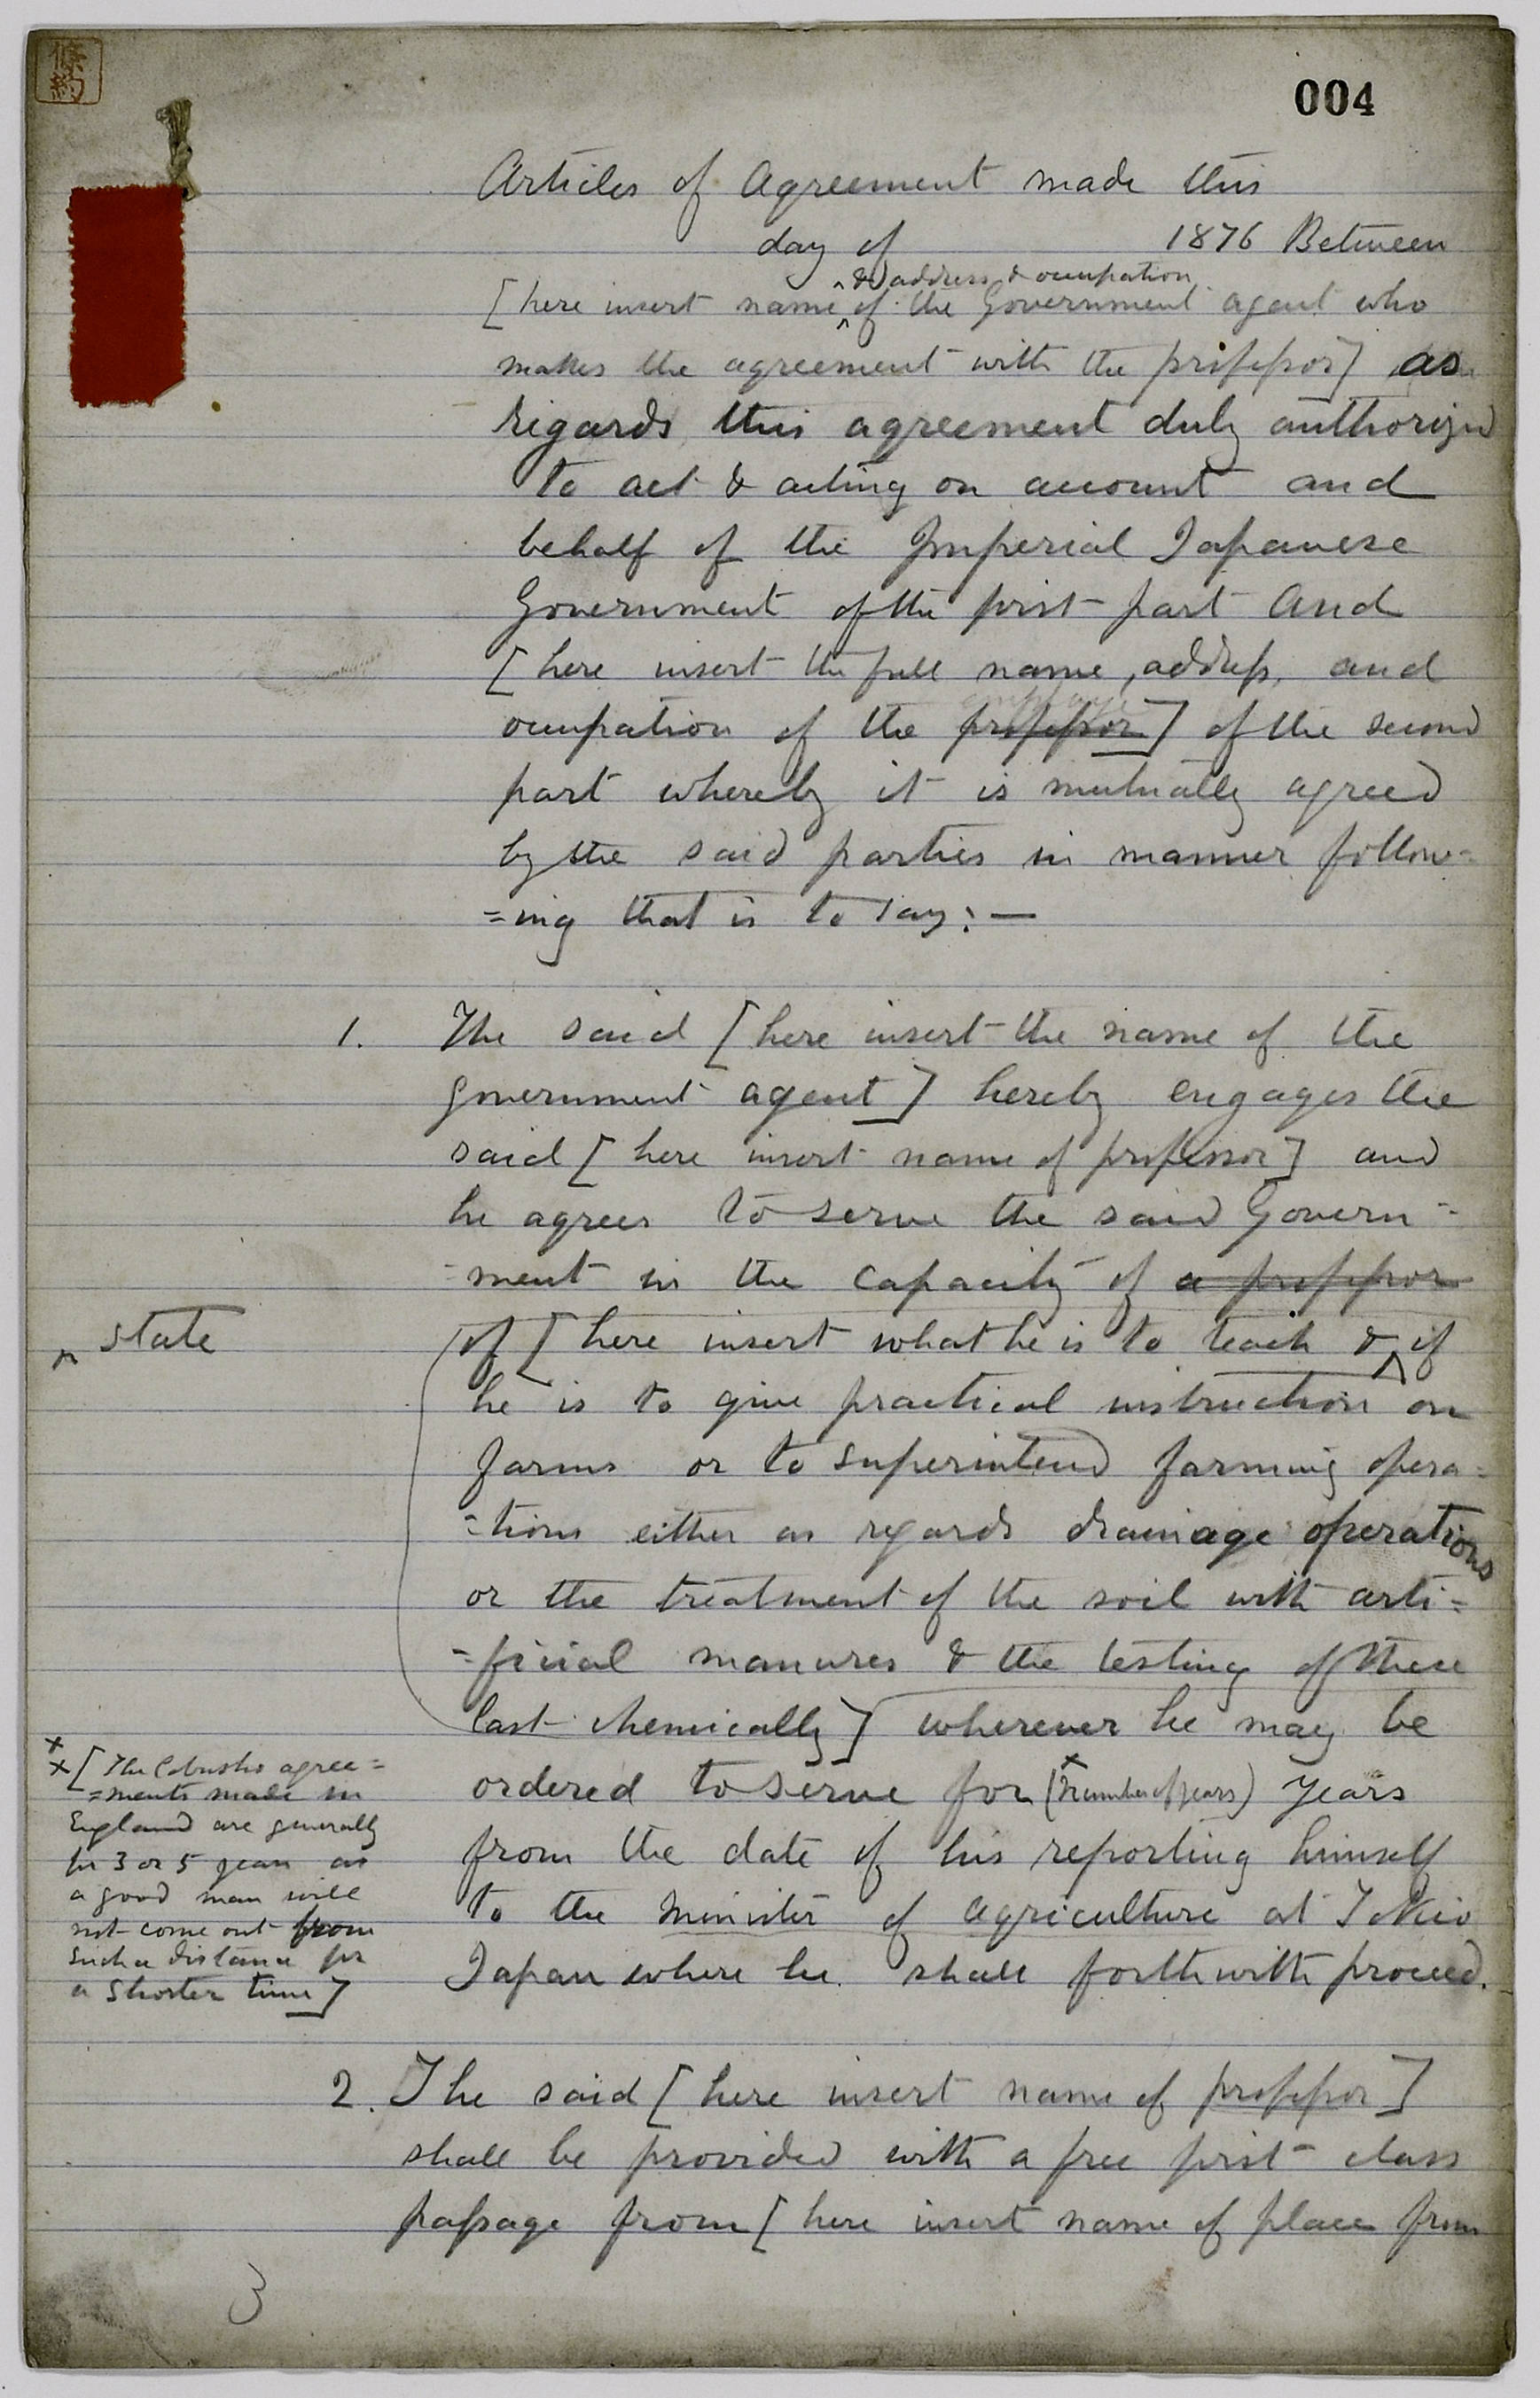 條約
004
Articles of Agreement made this
day of 1876 Between
& address & occupation
[here insert name of the Government agent who
makes the agreement with the professor] as
regards this agreement duly authorized
to act & acting on account and
behalf of the Imperial Japanese
Government of the first part And
[here insert the full name, address, and
occupation of the professor] of the second
part whereby it is mutually agreed
by the said parties in manner follow=
=ing that is to say: —
1. The said [here insert the name of the
government agent] hereby engages the
said [here insert name of professor] and
he agrees to serve the said Govern=
=ment in the capacity of a professor
of [here insert what he is to teach & if
state
he is to give practical instruction on
farms or to superintend farming opera=
=tions either as regards drainage operations
or the treatment of the soil with arti=
=ficial manures & the testing of these
last chemically] wherever he may be
ordered to serve for (number of years) years
from the date of his reporting himself
to the Minister of Agriculture at Tokio
Japan where he shall forthwith proceed.
x x [The Cobusho agree=
=ments made in
England are generally
for 3 or 5 years as
a good man will
not come out from
such a distance for
a shorter time]
2. The said [here insert name of professor]
shall be provided with a free first class
passage from [here insert name of place from
3